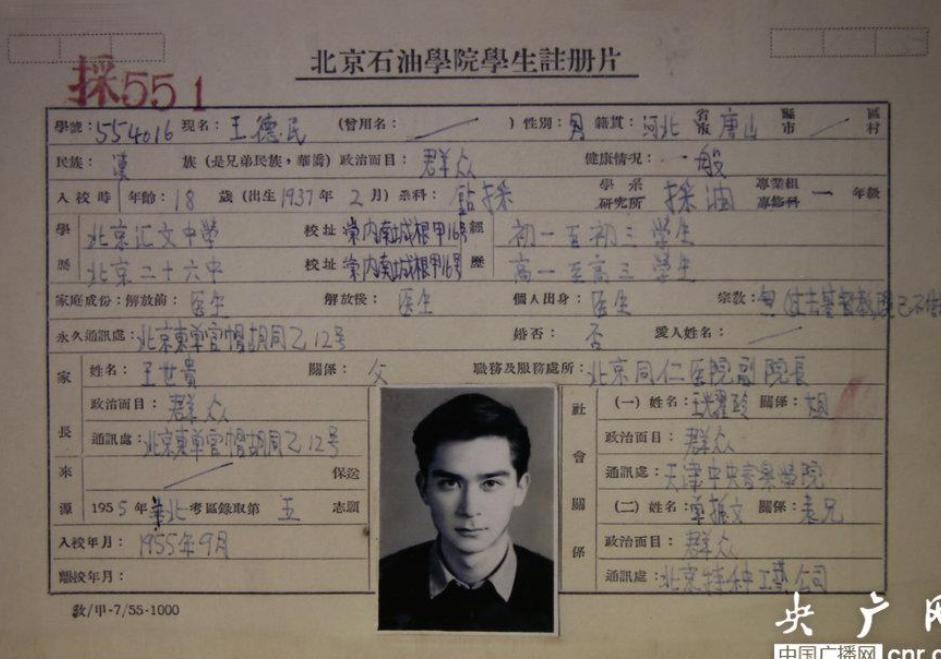 北京石油學院學生註册片
採551
學號：554016 現名：王德民 （曾用名： ） 性別：男 籍貫：河北 省市 唐山 縣市 區村
民族：漢 族（是兄弟民族，華僑）政治面目：群众 健康情况：一般
入校時 年齡：18 歲（出生1937年 2月）系科：鉆採 學系研究所 採油 專業組專修科 一 年級
學 北京汇文中學 校址：崇内南城根甲16号 經 初一至初三 學生
歷 北京二十六中 校址：崇内南城根甲16号 歷 高一至高三 學生
家庭成份：解放前：医生 解放後：医生 個人出身：医生 宗教：無
永久通訊處：北京東單官帽胡同乙12号 婚否：否 愛人姓名：
家 姓名：王世貴 關係：父 職務及服務處所：北京同仁医院副院長
政治面目：群众
長 通訊處：北京東單官帽胡同乙12号
來 保送
源 1955年華北考區錄取第 五 志願
入校年月：1955年9月
離校年月：
社會關係
（一）姓名： 關係：
政治面目：群众
通訊處：天津中央音樂學院
（二）姓名： 振文 關係：表兄
政治面目：群众
通訊處：北京特种工藝公司
敎/甲-7/55-1000
央广网
中国广播网 cnr.c